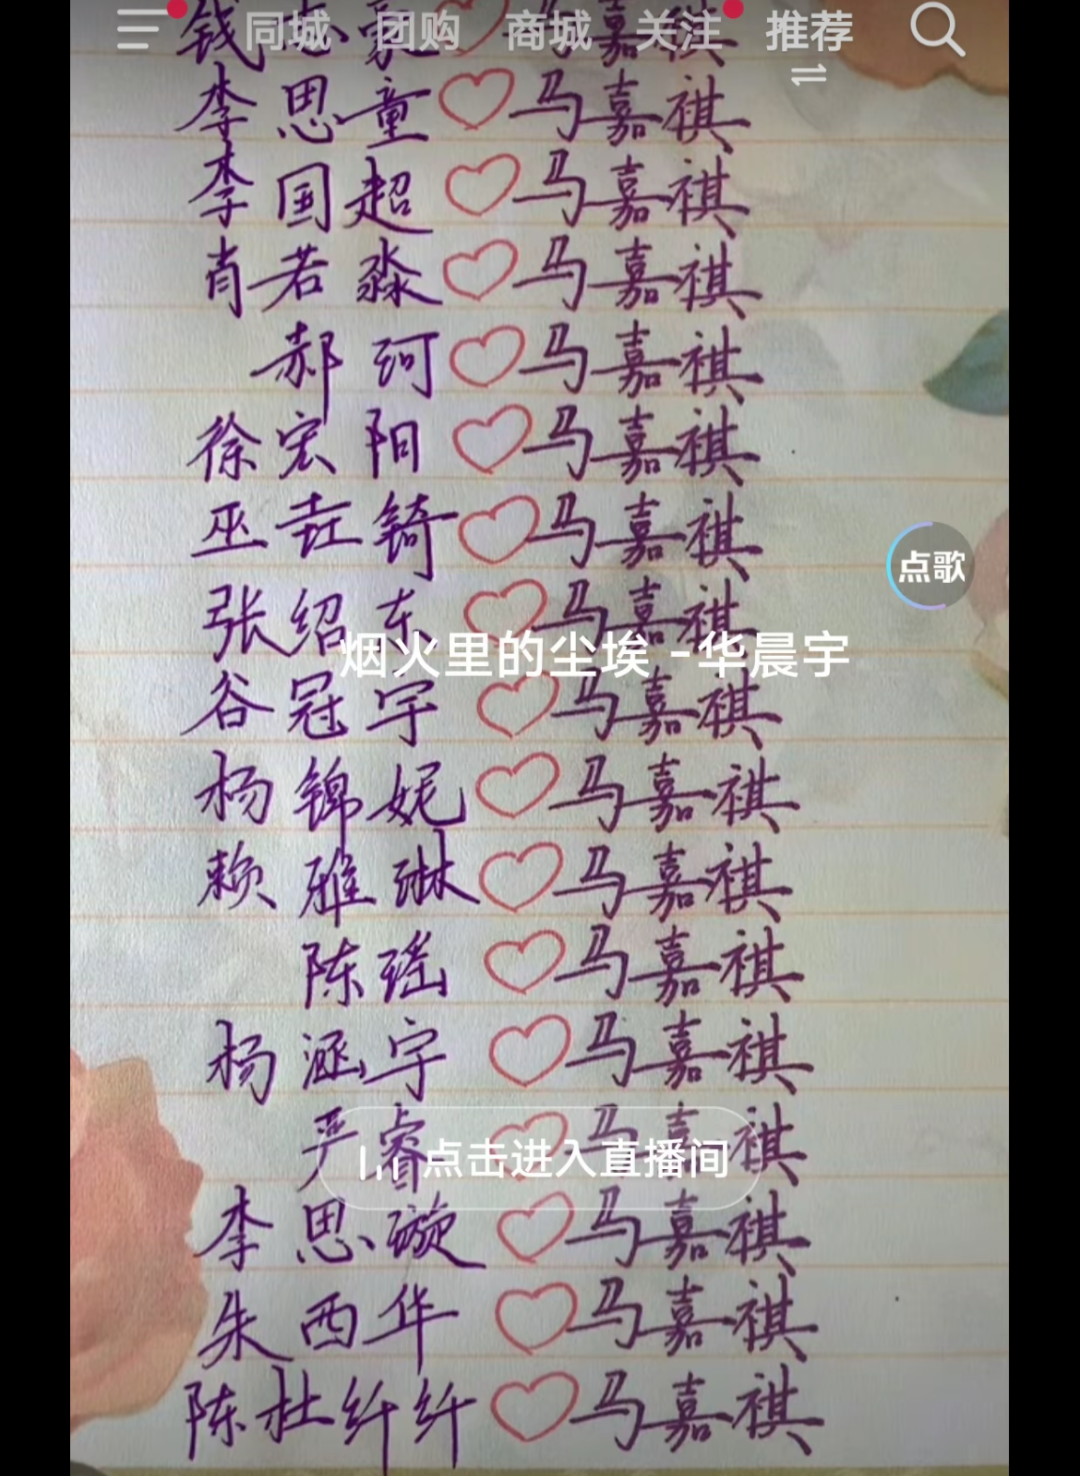 同城 团购 商城 关注 推荐
李思童♡马嘉祺
李国超♡马嘉祺
肖若淼♡马嘉祺
郝珂♡马嘉祺
徐宏阳♡马嘉祺
巫垚锜♡马嘉祺
点歌
张绍东♡马嘉祺
烟火里的尘埃 -华晨宇
谷冠宇♡马嘉祺
杨锦妮♡马嘉祺
赖雅琳♡马嘉祺
陈瑶♡马嘉祺
杨涵宇♡马嘉祺
严睿♡马嘉祺
点击进入直播间
李思璇♡马嘉祺
朱西华♡马嘉祺
陈杜纤纤♡马嘉祺